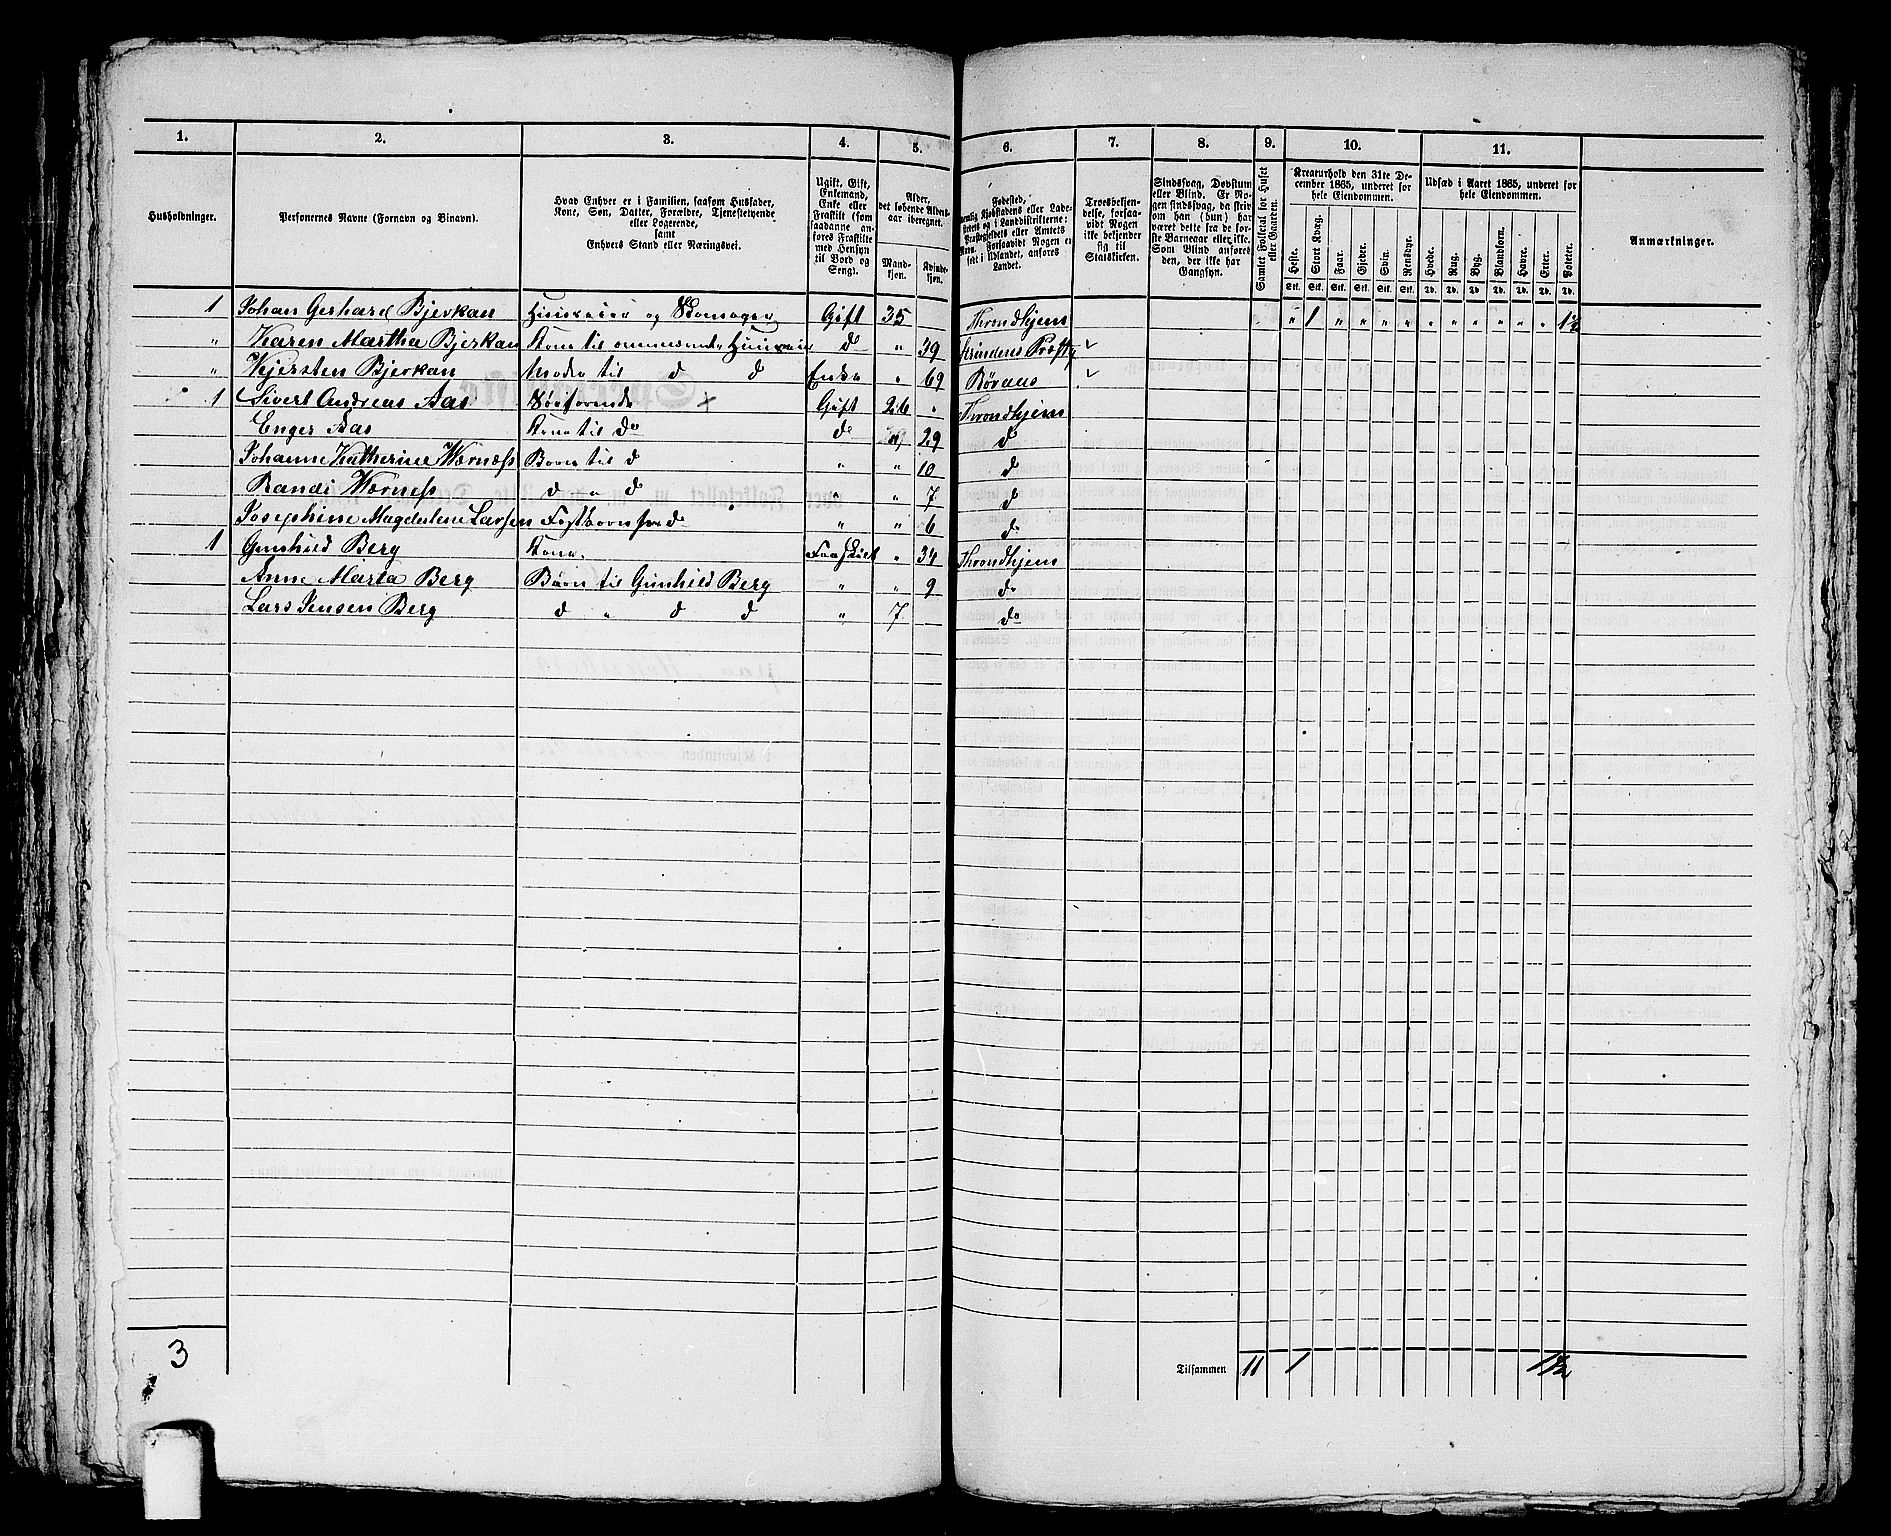 1. 2. 3. 4. 5. 6. 7. 8. 9. 10. 11.
Husholdninger.
Personernes Navne (Fornavn og Binavn).
Hvad Enhver er i Familien, saasom Husfader,
Kone, Søn, Datter, Forældre, Tjenestetyende
eller Logerende,
samt
Enhvers Stand eller Næringsvei.
Ugift, Gift,
Enkemand,
Enke eller
Fraskilt (som
saadanne an-
føres Fraskilte
med Hensyn
til Bord og
Seng).
Alder,
det løbende Alders-
aar iberegnet.
Mand-
kjøn.
Kvinde-
kjøn.
Fødested,
Landet.
Troesbekjen-
delse, forsaa-
vidt Nogen
ikke bekjender
sig til
Statskirken.
Sindssvag, Døvstum
eller Blind. Er No-
gen sindssvag, da skriv
om han (hun) har
været dette fra de før-
ste Barneaar eller ikke.
Som Blind anføres
den, der ikke har
Gangsyn.
Samlet Folketal for Huset
eller Gaarden.
Kreaturhold den 31te De-
cember 1865, underet for
hele Eiendommen.
Heste. Stort Kvæg. Faar. Gjeder. Svin. Rensdyr.
Stk. Stk. Stk. Stk. Stk. Stk.
Udsæd i Aaret 1865, underet for
hele Eiendommen.
Hvede. Rug. Byg. Blandkorn. Havre. Erter. Poteter.
Td. Td. Td. Td. Td. Td. Td.
Anmærkninger.
1 Johan Gerhard Bjerkan og Gift 35 Throndhjem " 1 " " " " " " " " " " 1½
" Karen Martha Bjerkan Kone til d " 39 Strindens
" Kjersten Bjerkan Moder til d d Enke " 69 Røraas
1 Sivert Andreas Aas Gift 26 " Throndhjem
Enger Aas Kone til do d 29 d
Johanne Katherine Wærness Børn til d " " 10 d
Randi Wærness d " d " " 7 d
Josephine Magdalene Larsen d " " 6 do
1 Gunhild Berg Kone Fraskilt " 34 Throndhjem
Anne Marta Berg Børn til Gunhild Berg " " 9 do
Lars Jensen Berg d " d d " 7 do
3
Tilsammen 11 1 1½